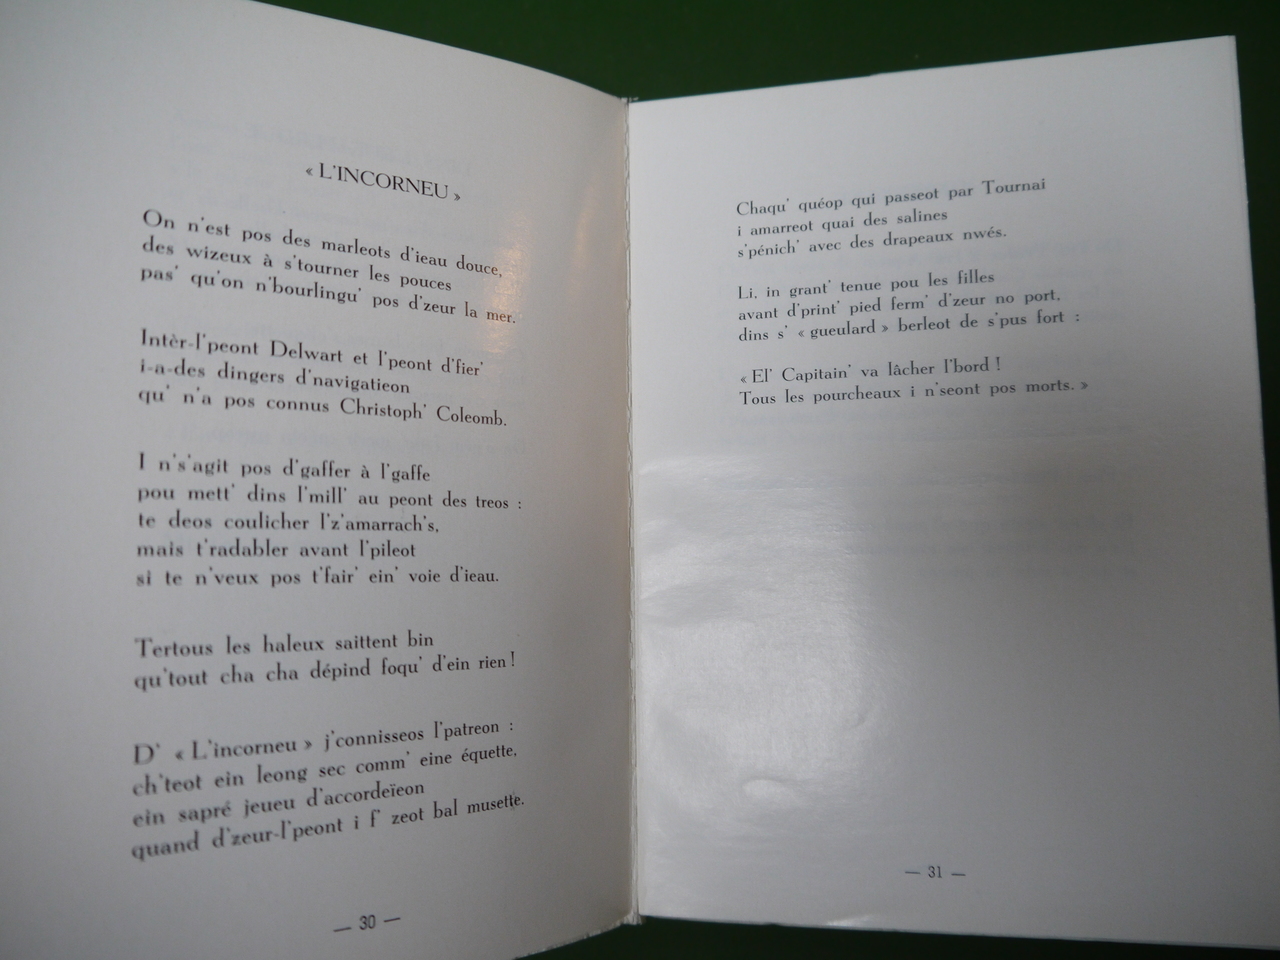 « L'INCORNEU »
On n'est pos des marleots d'ieau douce,
des wizeux à s'tourner les pouces
pas' qu'on n'bourlingu' pos d'zeur la mer.
Intèr-l'peont Delwart et l'peont d'fier'
i-a-des dingers d'navigatieon
qu' n'a pos connus Christoph' Coleomb.
I n's'agit pos d'gaffer à l'gaffe
pou mett' dins l'mill' au peont des treos :
te deos coulicher l'z'amarrach's,
mais t'radabler avant l'pileot
si te n'veux pos t'fair' ein' voie d'ieau.
Tertous les haleux saittent bin
qu'tout cha cha dépind foqu' d'ein rien !
D' « L'incorneu » j'connisseos l'patreon :
ch'teot ein leong sec comm' eine équette,
ein sapré jeueu d'accordeïeon
quand d'zeur-l'peont i f' zeot bal musette.
— 30 —
Chaqu' quéop qui passeot par Tournai
i amarreot quai des salines
s'pénich' avec des drapeaux nwés.
Li, in grant' tenue pou les filles
avant d'print' pied ferm' d'zeur no port,
dins s' « gueulard » berleot de s'pus fort :
« El' Capitain' va lâcher l'bord !
Tous les pourcheaux i n'seont pos morts. »
— 31 —